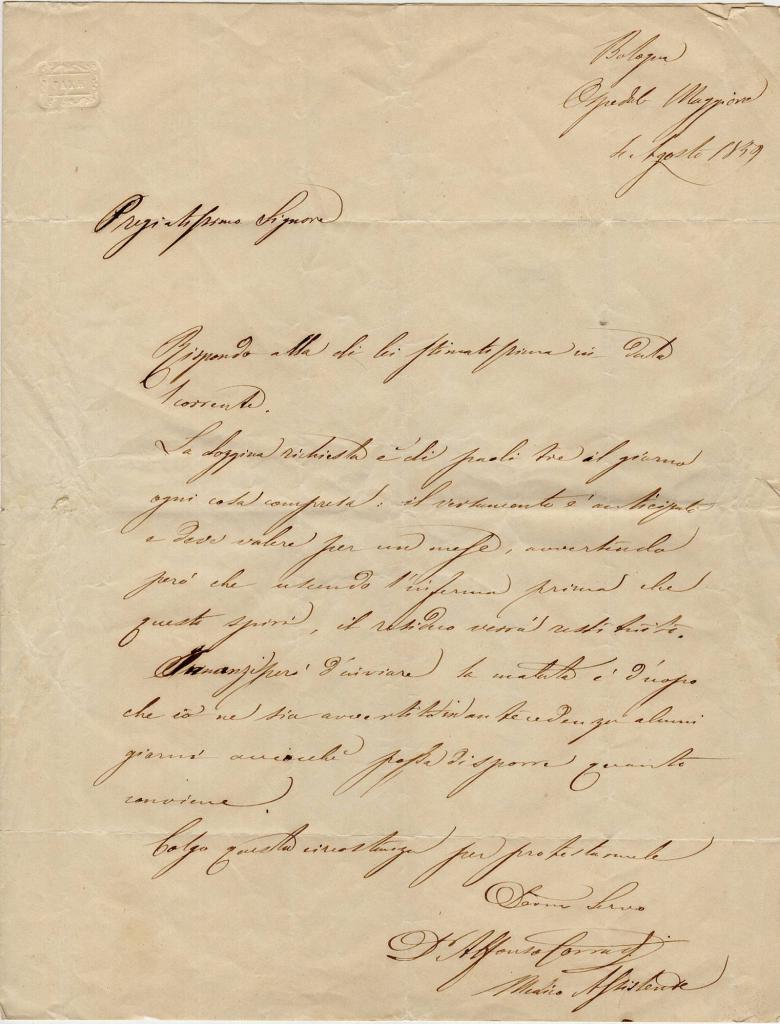 Bologna
Ospedale Maggiore
4 Agosto 1859
Pregiatissimo Signore
Rispondo alla di lei stimatissima in data
1 corrente.
La dozzina richiesta è di paoli tre il giorno
ogni cosa compresa: il versamento è anticipato
e deve valere per un mese, avvertendo
però che uscendo l'inferma prima che
questo spiri, il residuo verrà restituito.
Innanzi però d'inviare la malata è d'uopo
che io ne sia avvertito in antecedenza alcuni
giorni acciocchè possa disporre quanto
conviene.
Colgo questa circostanza per protestarmele
Devmo Servo
Dr Alfonso Corradi
Medico Assistente